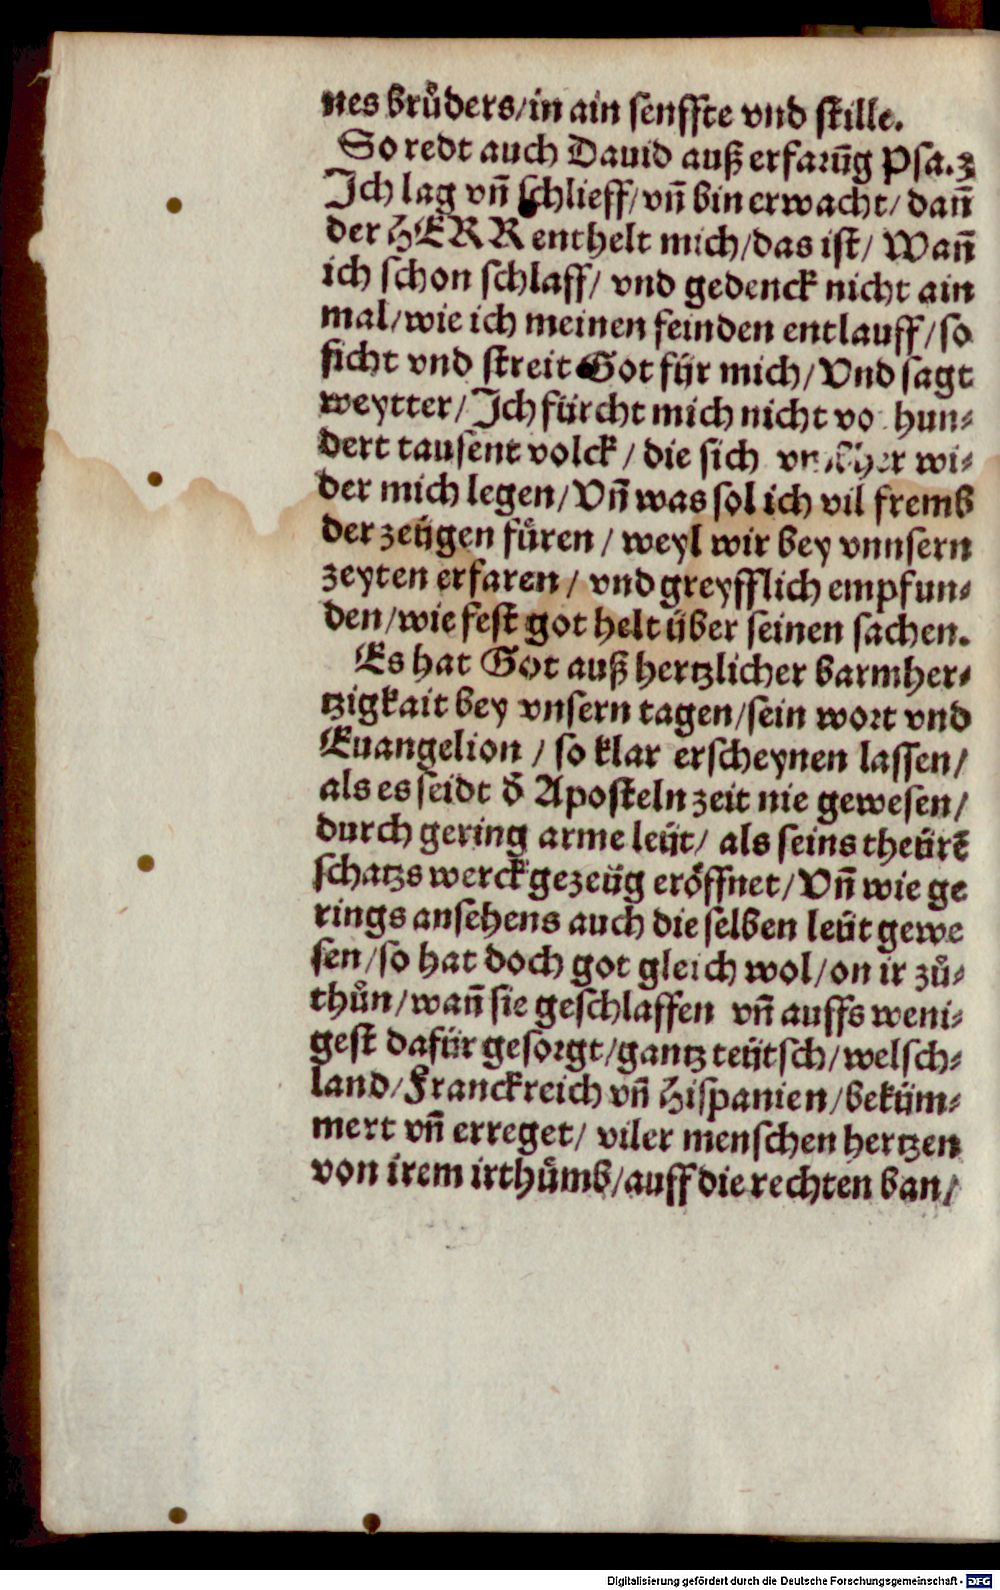 nes brůders/in ain senffte vnd stille.
So redt auch Dauid auß erfarũg Psa.3
Ich lag vñ schlieff/vñ bin erwacht/ dañ
der HERR enthelt mich/das ist/ Wañ
ich schon schlaff/ vnd gedenck nicht ain
mal/wie ich meinen feinden entlauff/so
ficht vnd streit Got für mich/Vnd sagt
weytter/ Ich fürcht mich nicht vo hun-
dert tausent volck/ die sich wi-
der mich legen/Vñ was sol ich vil fremb
der zeügen fůren/ weyl wir bey vnnsern
zeyten erfaren/ vnd greyfflich empfun-
den/wie fest got helt über seinen sachen.
Es hat Got auß hertzlicher barmher-
tzigkait bey vnsern tagen/sein wort vnd
Euangelion/ so klar erscheynen lassen/
als es seidt d̃ Aposteln zeit nie gewesen/
durch gering arme leüt/ als seins theürẽ
schatzs werckgezeüg eröffnet/Vñ wie ge
rings ansehens auch die selben leüt gewe
sen/so hat doch got gleich wol/on ir zů-
thůn/wañ sie geschlaffen vñ auffs weni-
gest dafür gesorgt/gantz teütsch/welsch-
land/Franckreich vñ Hispanien/beküm-
mert vñ erreget/ viler menschen hertzen
von irem irthůmb/auff die rechten ban/
Digitalisierung gefördert durch die Deutsche Forschungsgemeinschaft - DFG